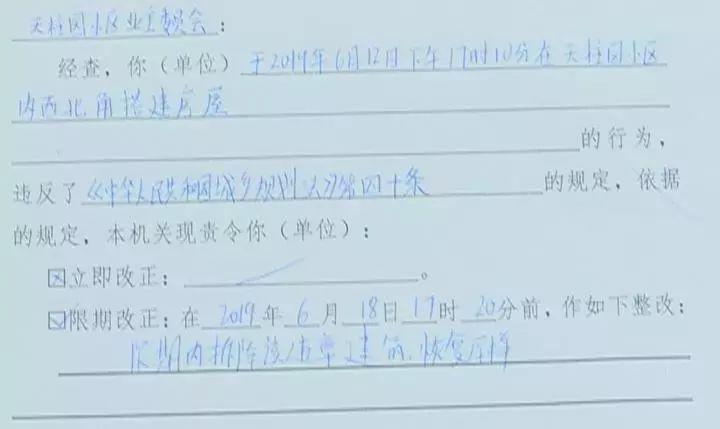 天柱园小区业主委员会：
经查，你（单位）于2019年6月12日下午17时10分在天柱园小区
内西北角搭建房屋
的行为，
违反了《中华人民共和国城乡规划法》第四十条的规定，依据
的规定，本机关现责令你（单位）：
☒立即改正：。
☑限期改正：在2019年6月18日17时20分前，作如下整改：
限期内拆除该违章建筑，恢复原样